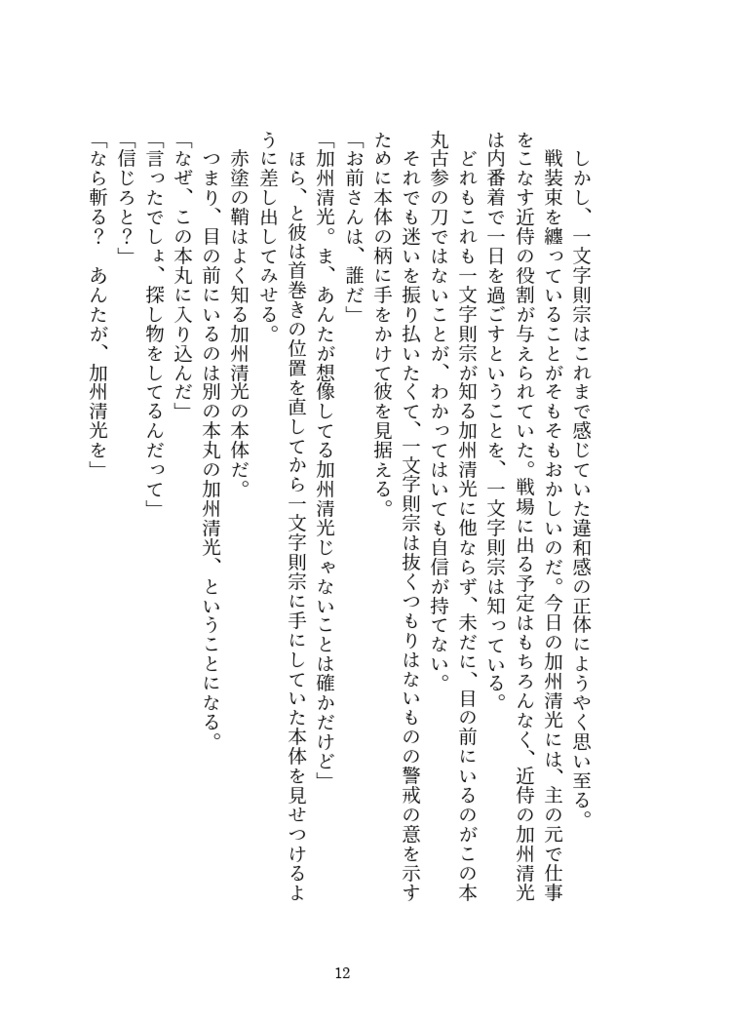 しかし、一文字則宗はこれまで感じていた違和感の正体にようやく思い至る。
戦装束を纏っていることがそもそもおかしいのだ。今日の加州清光には、主の元で仕事
をこなす近侍の役割が与えられていた。戦場に出る予定はもちろんなく、近侍の加州清光
は内番着で一日を過ごすということを、一文字則宗は知っている。
どれもこれも一文字則宗が知る加州清光に他ならず、未だに、目の前にいるのがこの本
丸古参の刀ではないことが、わかってはいても自信が持てない。
それでも迷いを振り払いたくて、一文字則宗は抜くつもりはないものの警戒の意を示す
ために本体の柄に手をかけて彼を見据える。
「お前さんは、誰だ」
「加州清光。ま、あんたが想像してる加州清光じゃないことは確かだけど」
ほら、と彼は首巻きの位置を直してから一文字則宗に手にしていた本体を見せつけるよ
うに差し出してみせる。
赤塗の鞘はよく知る加州清光の本体だ。
つまり、目の前にいるのは別の本丸の加州清光、ということになる。
「なぜ、この本丸に入り込んだ」
「言ったでしょ、探し物をしてるんだって」
「信じろと？」
「なら斬る？　あんたが、加州清光を」
12